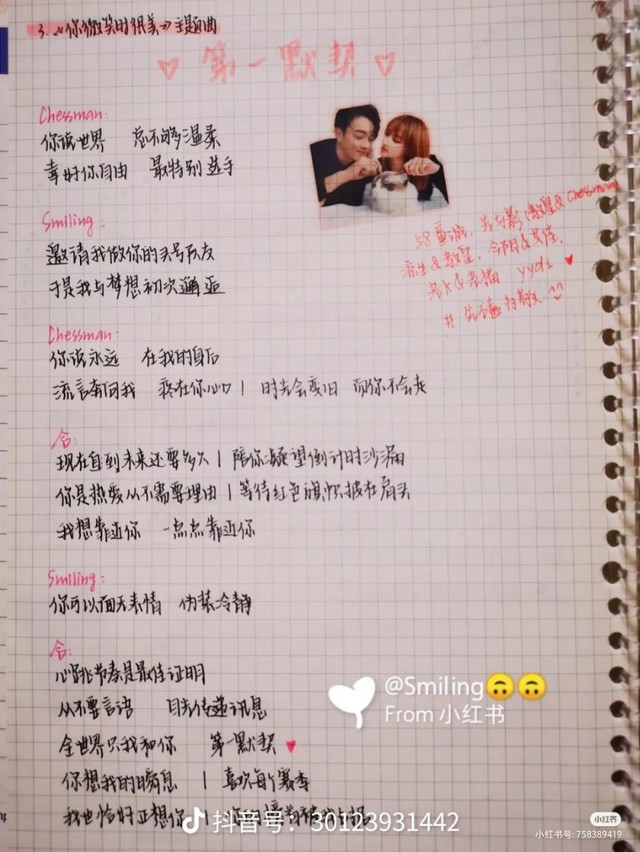 3.《你微笑时很美》主题曲
♡ 第一默契 ♡
Chessman:
你说世界 总不够温柔
幸好你自由 最特别选手
Smiling:
邀请我做你的头号队友
于是我与梦想初次邂逅
Chessman:
你说永远 在我的身后
流言奔向我 疼在你心口 | 时光会变旧 而你不会走
合:
现在直到未来还要多久 | 陪你凝望倒计时沙漏
你是热爱从不需要理由 | 等待红色旗帜披在肩头
我想靠近你 一点点靠近你
Smiling:
你可以面无表情 伪装冷静
合:
心跳节奏是最佳证明
从不要言语 目光传递讯息
全世界只我和你 第一默契 ♥
你想我的瞬息 | 喜欢每个赛季
我也恰好正想你
yyds ♥
@Smiling🙃🙃
From 小红书
抖音号：30123931442
小红书
小红书号: 758389419